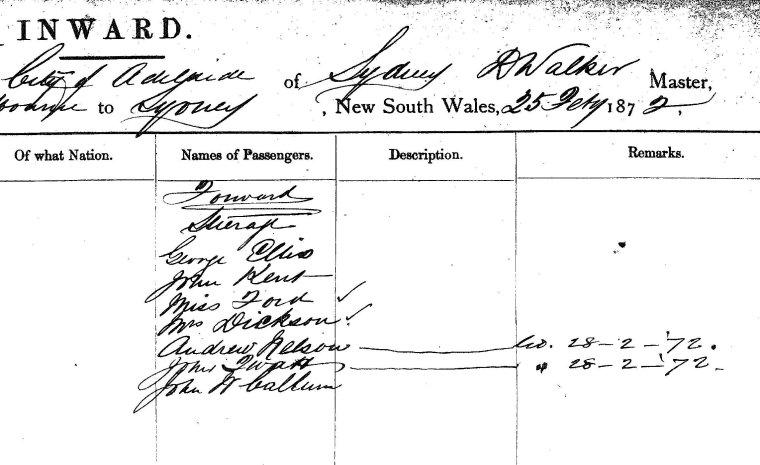 INWARD.
City of Adelaide of Sydney R Walker Master,
to Sydney, New South Wales, 25 Feby 1872.
Of what Nation. Names of Passengers. Description. Remarks.
Forward
Steerage
George Ellis
John Kent
Miss Ford ✓
Mrs Dickson ✓
Andrew Nelson 28-2-'72.
John 28-2-'72.
John